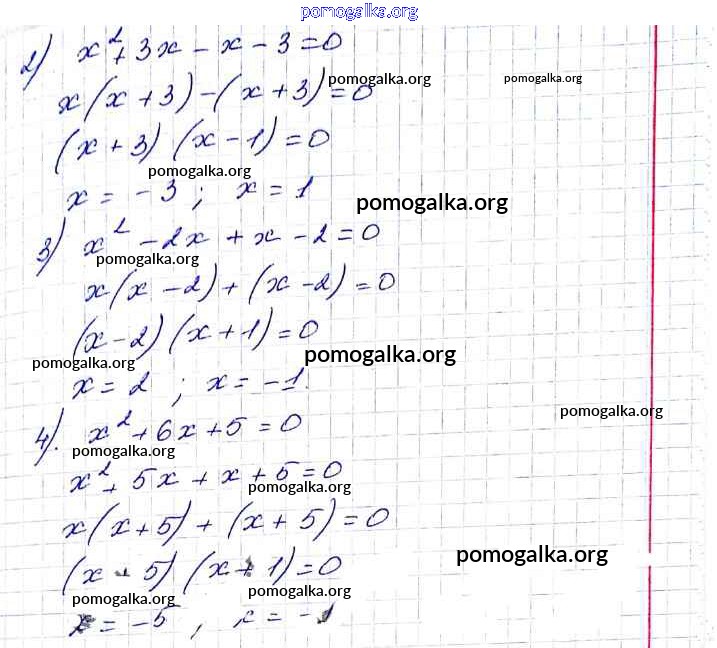 pomogalka.org
2) x² + 3x - x - 3 = 0
pomogalka.org pomogalka.org
x(x + 3) - (x + 3) = 0
(x + 3) (x - 1) = 0
pomogalka.org
x = -3 ; x = 1
pomogalka.org
3) x² - 2x + x - 2 = 0
pomogalka.org
x(x - 2) + (x - 2) = 0
(x - 2) (x + 1) = 0
pomogalka.org pomogalka.org
x = 2 ; x = -1.
pomogalka.org
4). x² + 6x + 5 = 0
pomogalka.org
x² + 5x + x + 5 = 0
pomogalka.org
x(x + 5) + (x + 5) = 0
pomogalka.org
(x + 5) (x + 1) = 0
pomogalka.org pomogalka.org
x = -5 , x = -1